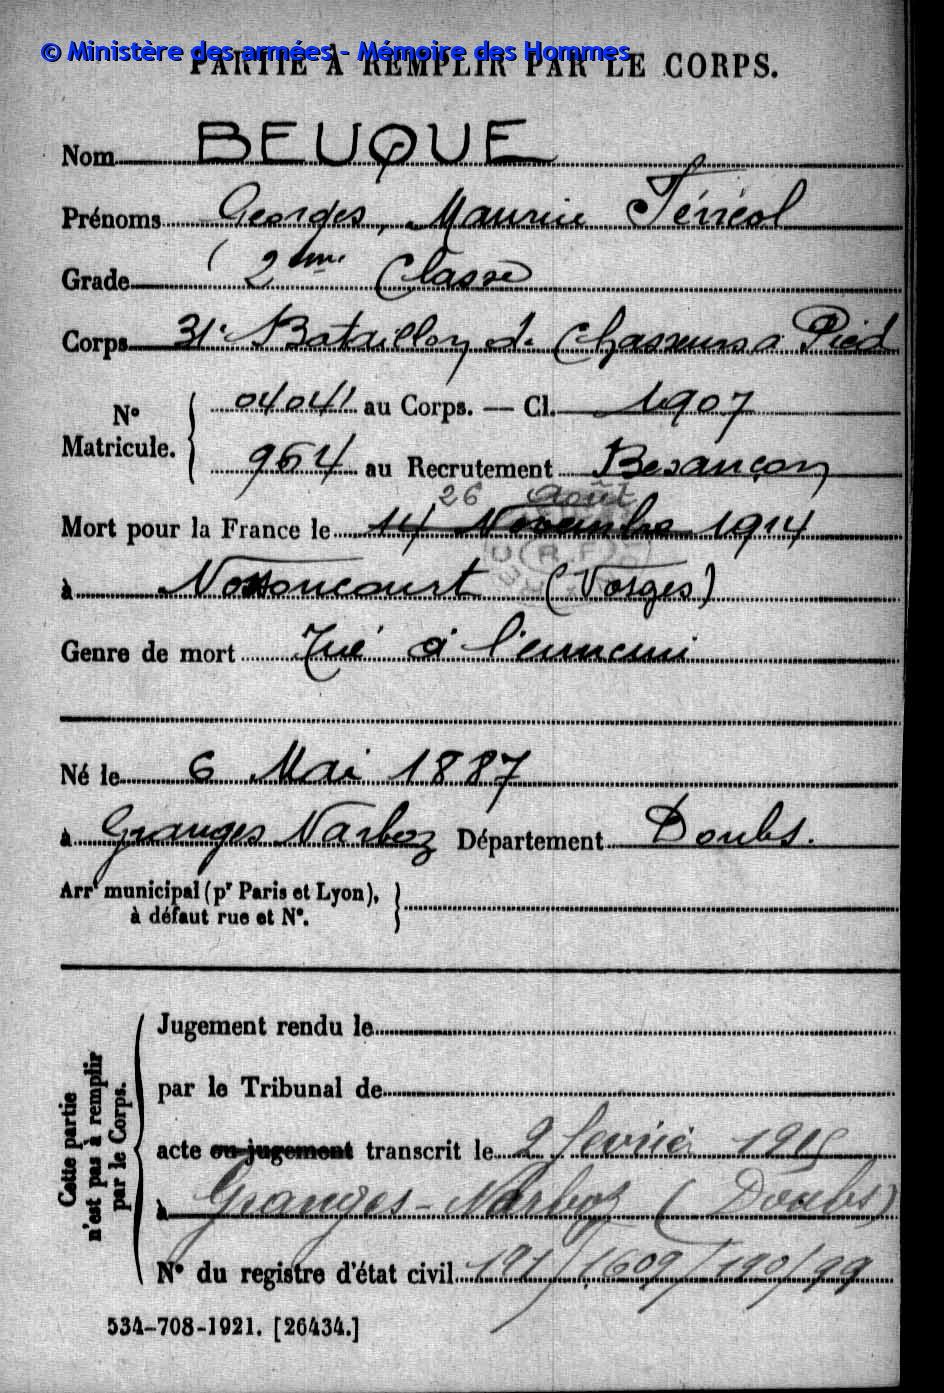 © Ministère des armées - Mémoire des Hommes
PARTIE À REMPLIR PAR LE CORPS.
Nom BEUQUE
Prénoms Georges, Maurice Férréol
Grade 2ème Classe
Corps 31e Bataillon de Chasseurs a Pied
N° Matricule. 04041 au Corps. — Cl. 1907
964 au Recrutement Besançon
26 Août
Mort pour la France le 14 Novembre 1914
à Nossoncourt (Vosges)
Genre de mort Tué à l'ennemi
Né le 6 Mai 1887
à Granges Narboz Département Doubs.
Arrt municipal (pr Paris et Lyon),
à défaut rue et N°.
Cette partie
n'est pas à remplir
par le Corps.
Jugement rendu le
par le Tribunal de
acte ou jugement transcrit le 2 fevrier 1915
à Granges-Narboz (Doubs)
N° du registre d'état civil 191/1609/190/99
534-708-1921. [26434.]